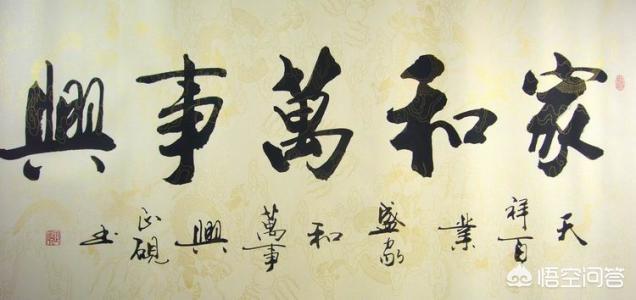 家和萬事興
天祥百業盛家和萬事興
正硯书
悟空问答